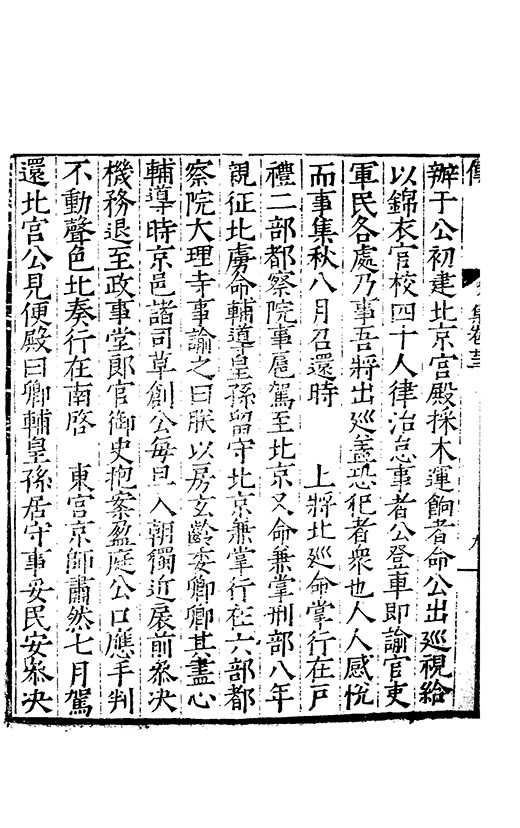 辦于公初建北京宮殿採木運餉者命公出巡視給
以錦衣官校四十人律治怠事者公登車即諭官吏
軍民各處乃事吾將出巡盖恐犯者衆也人人感恱
而事集秋八月召還時　上將北巡命掌行在戸
禮二部都察院事扈駕至北京又命兼掌刑部八年
親征北虜命輔導皇孫留守北京兼掌行在六部都
察院大理寺事諭之曰朕以房玄齡委卿卿其盡心
輔導時京邑諸司草創公每旦入朝獨近扆前叅决
機務退至政事堂郎官御史抱案盈庭公口應手判
不動聲色北奏行在南啓　東宮京師肅然七月駕
還北宮公見便殿曰卿輔皇孫居守事妥民安叅决